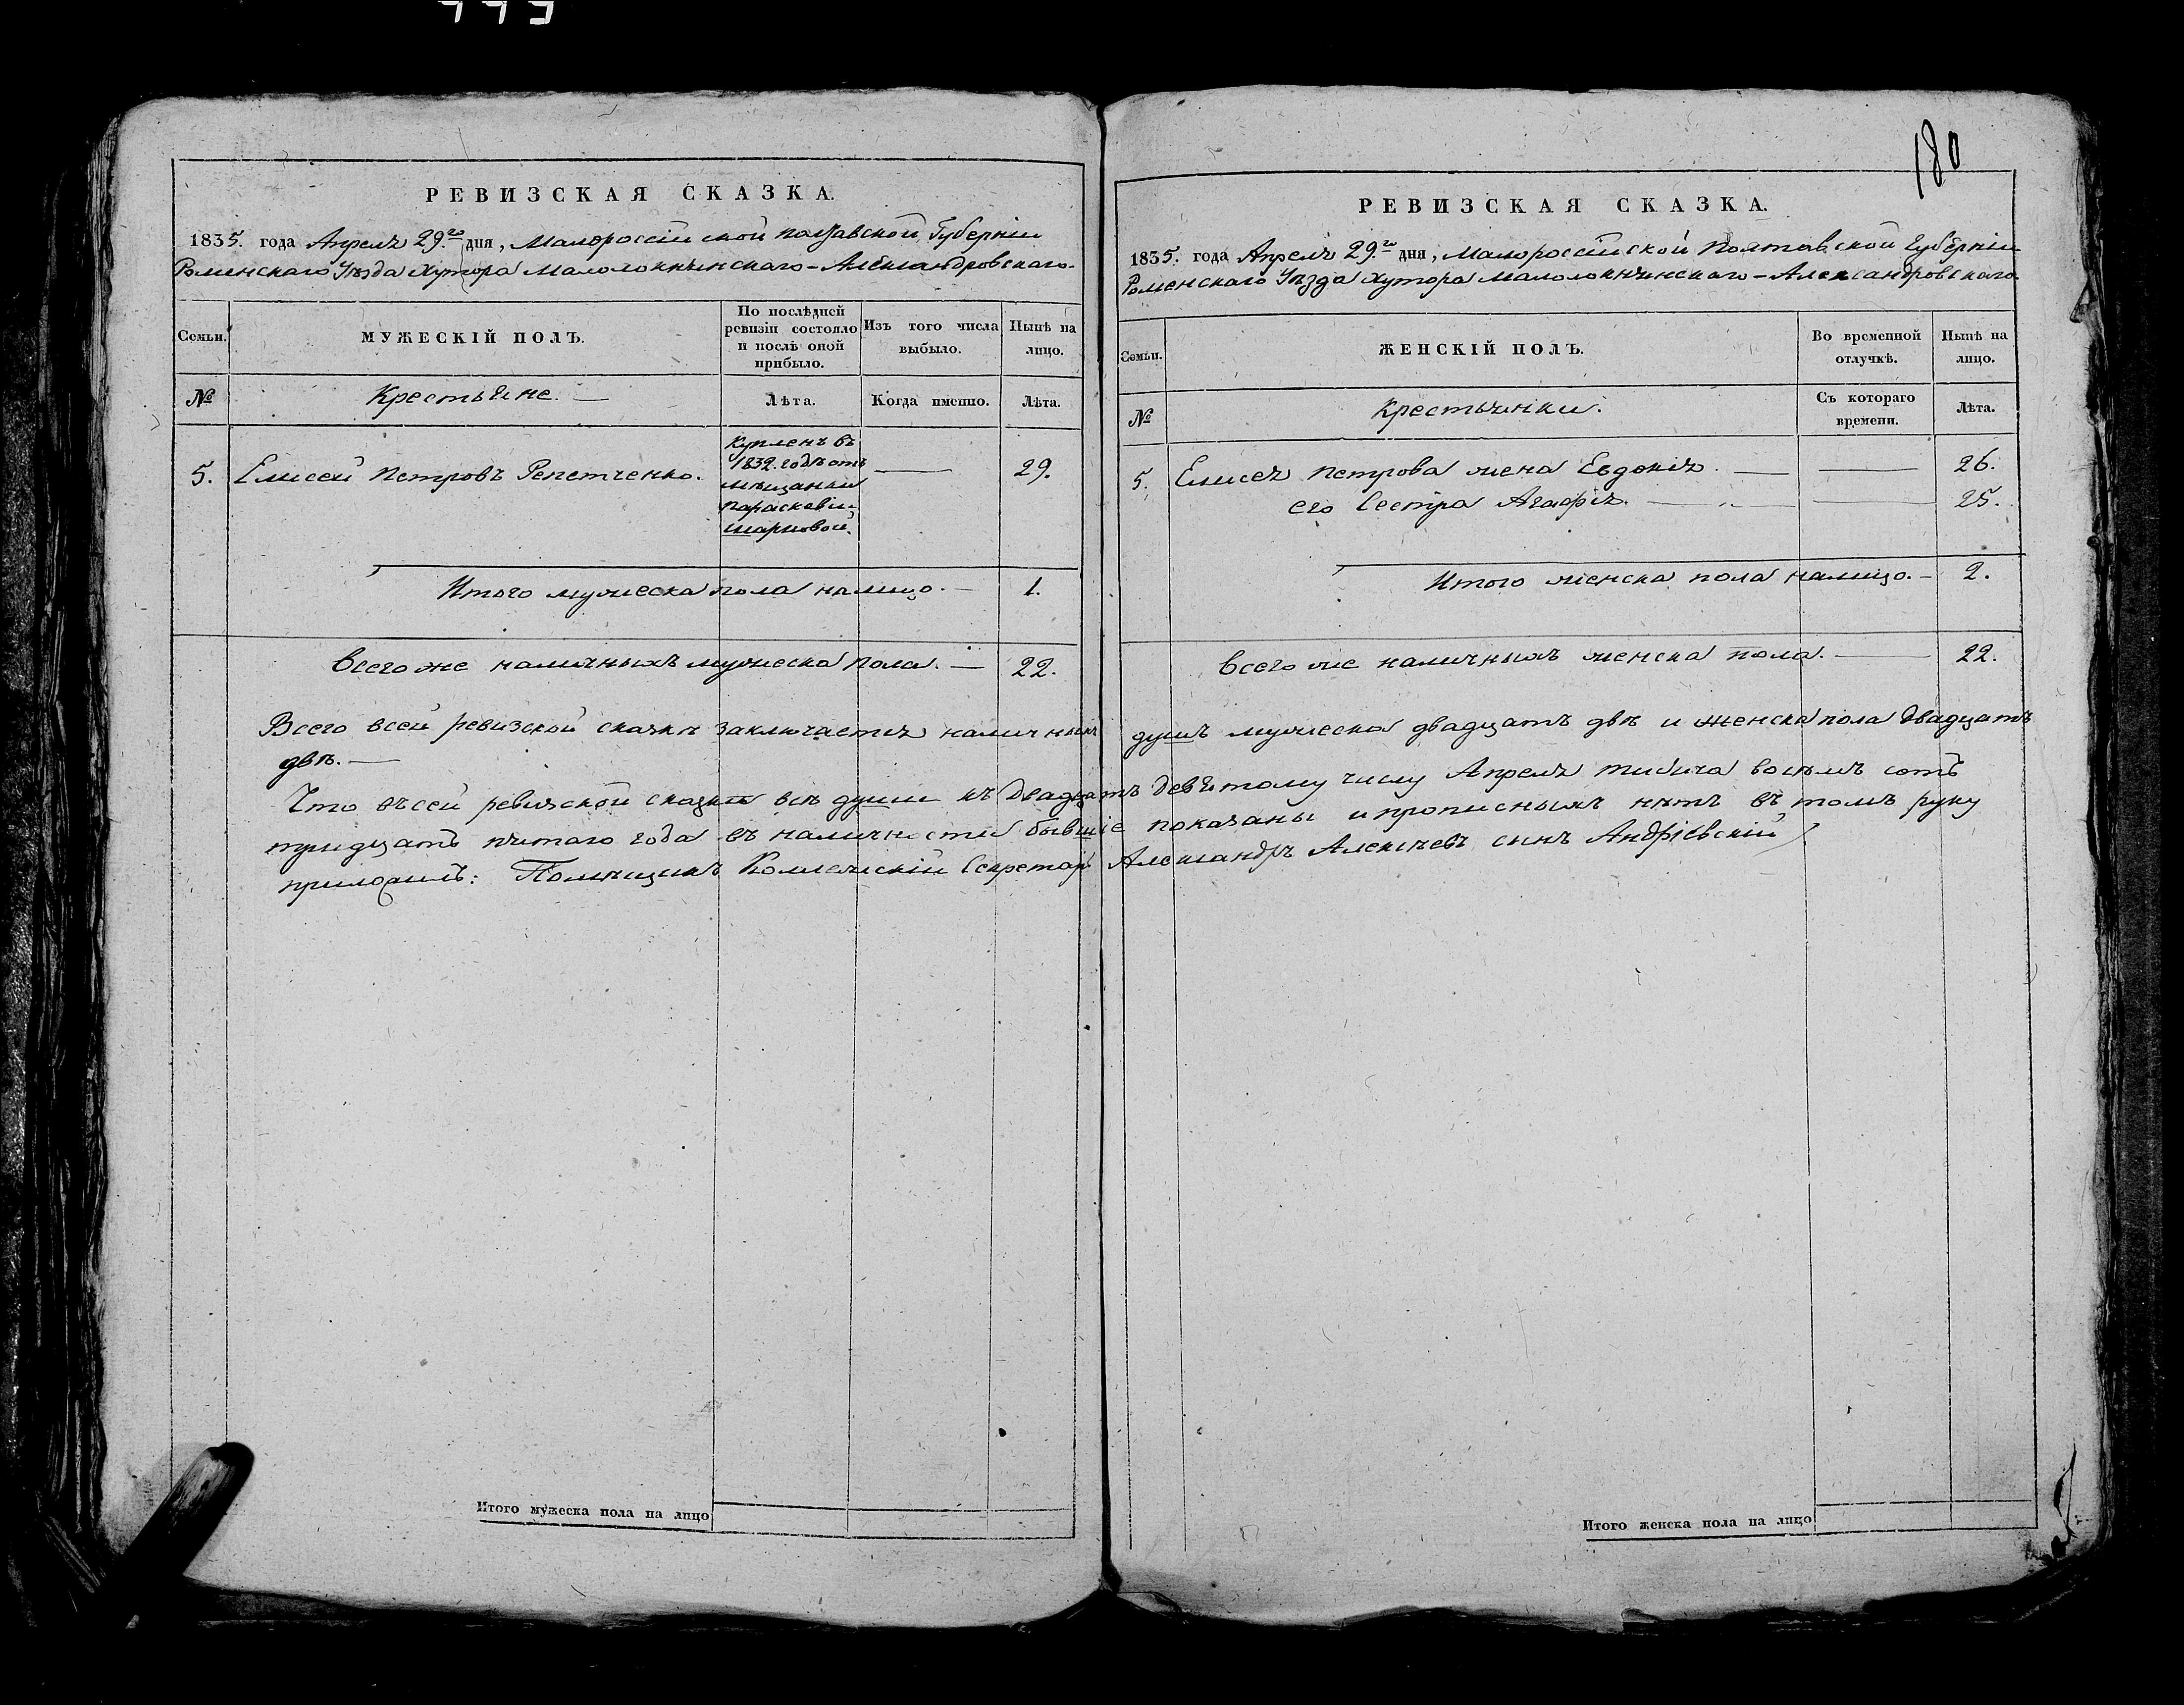 РЕВИЗСКАЯ СКАЗКА.
1835. года Апреля 29.го дня, Малороссійской Полтавской Губерніи
Роменскаго Уѣзда Хутора Малолокнянскаго-Александровскаго.
Семьи.
МУЖЕСКІЙ ПОЛЪ.
По послѣдней ревизіи состояло и послѣ оной прибыло.
Изъ того числа выбыло.
Нынѣ на лицо.
№
Крестьяне.
Лѣта.
Когда именно.
Лѣта.
5. Елисей Петровъ Репетченко. 29.
Купленъ въ
1832. годѣ отъ
мѣщанки
Параскевіи
Итого мужеска пола налицо. 1.
Всего же наличныхъ мужеска пола. 22.
180
РЕВИЗСКАЯ СКАЗКА.
1835. года Апреля 29.го дня, Малороссійской Полтавской Губерніи
Роменскаго Уѣзда Хутора Малолокнянскаго-Александровскаго
Семьи.
ЖЕНСКІЙ ПОЛЪ.
Во временной отлучкѣ.
Нынѣ на лицо.
№
Крестьянки.
Съ котораго времени.
Лѣта.
5. Елисея Петрова жена Евдокія. 26.
его Сестра Агафія. 25.
Итого женска пола налицо. 2.
Всего же наличныхъ женска пола. 22.
Всего всей ревизской сказки заключается наличныхъ душъ мужеска двадцать двѣ и женска пола двадцать
двѣ.
Что въ сей ревизской сказки всѣ души къ двадцать девятому числу Апреля тисяча восемь сотъ
тридцать пятого года въ наличности бывшіе показаны и прописныхъ нѣтъ въ томъ руку
приложилъ: Помѣщикъ Колежскій Секретарь Александръ Алексѣевъ сынъ Андріевскій
Итого мужеска пола на лицо
Итого женска пола на лицо